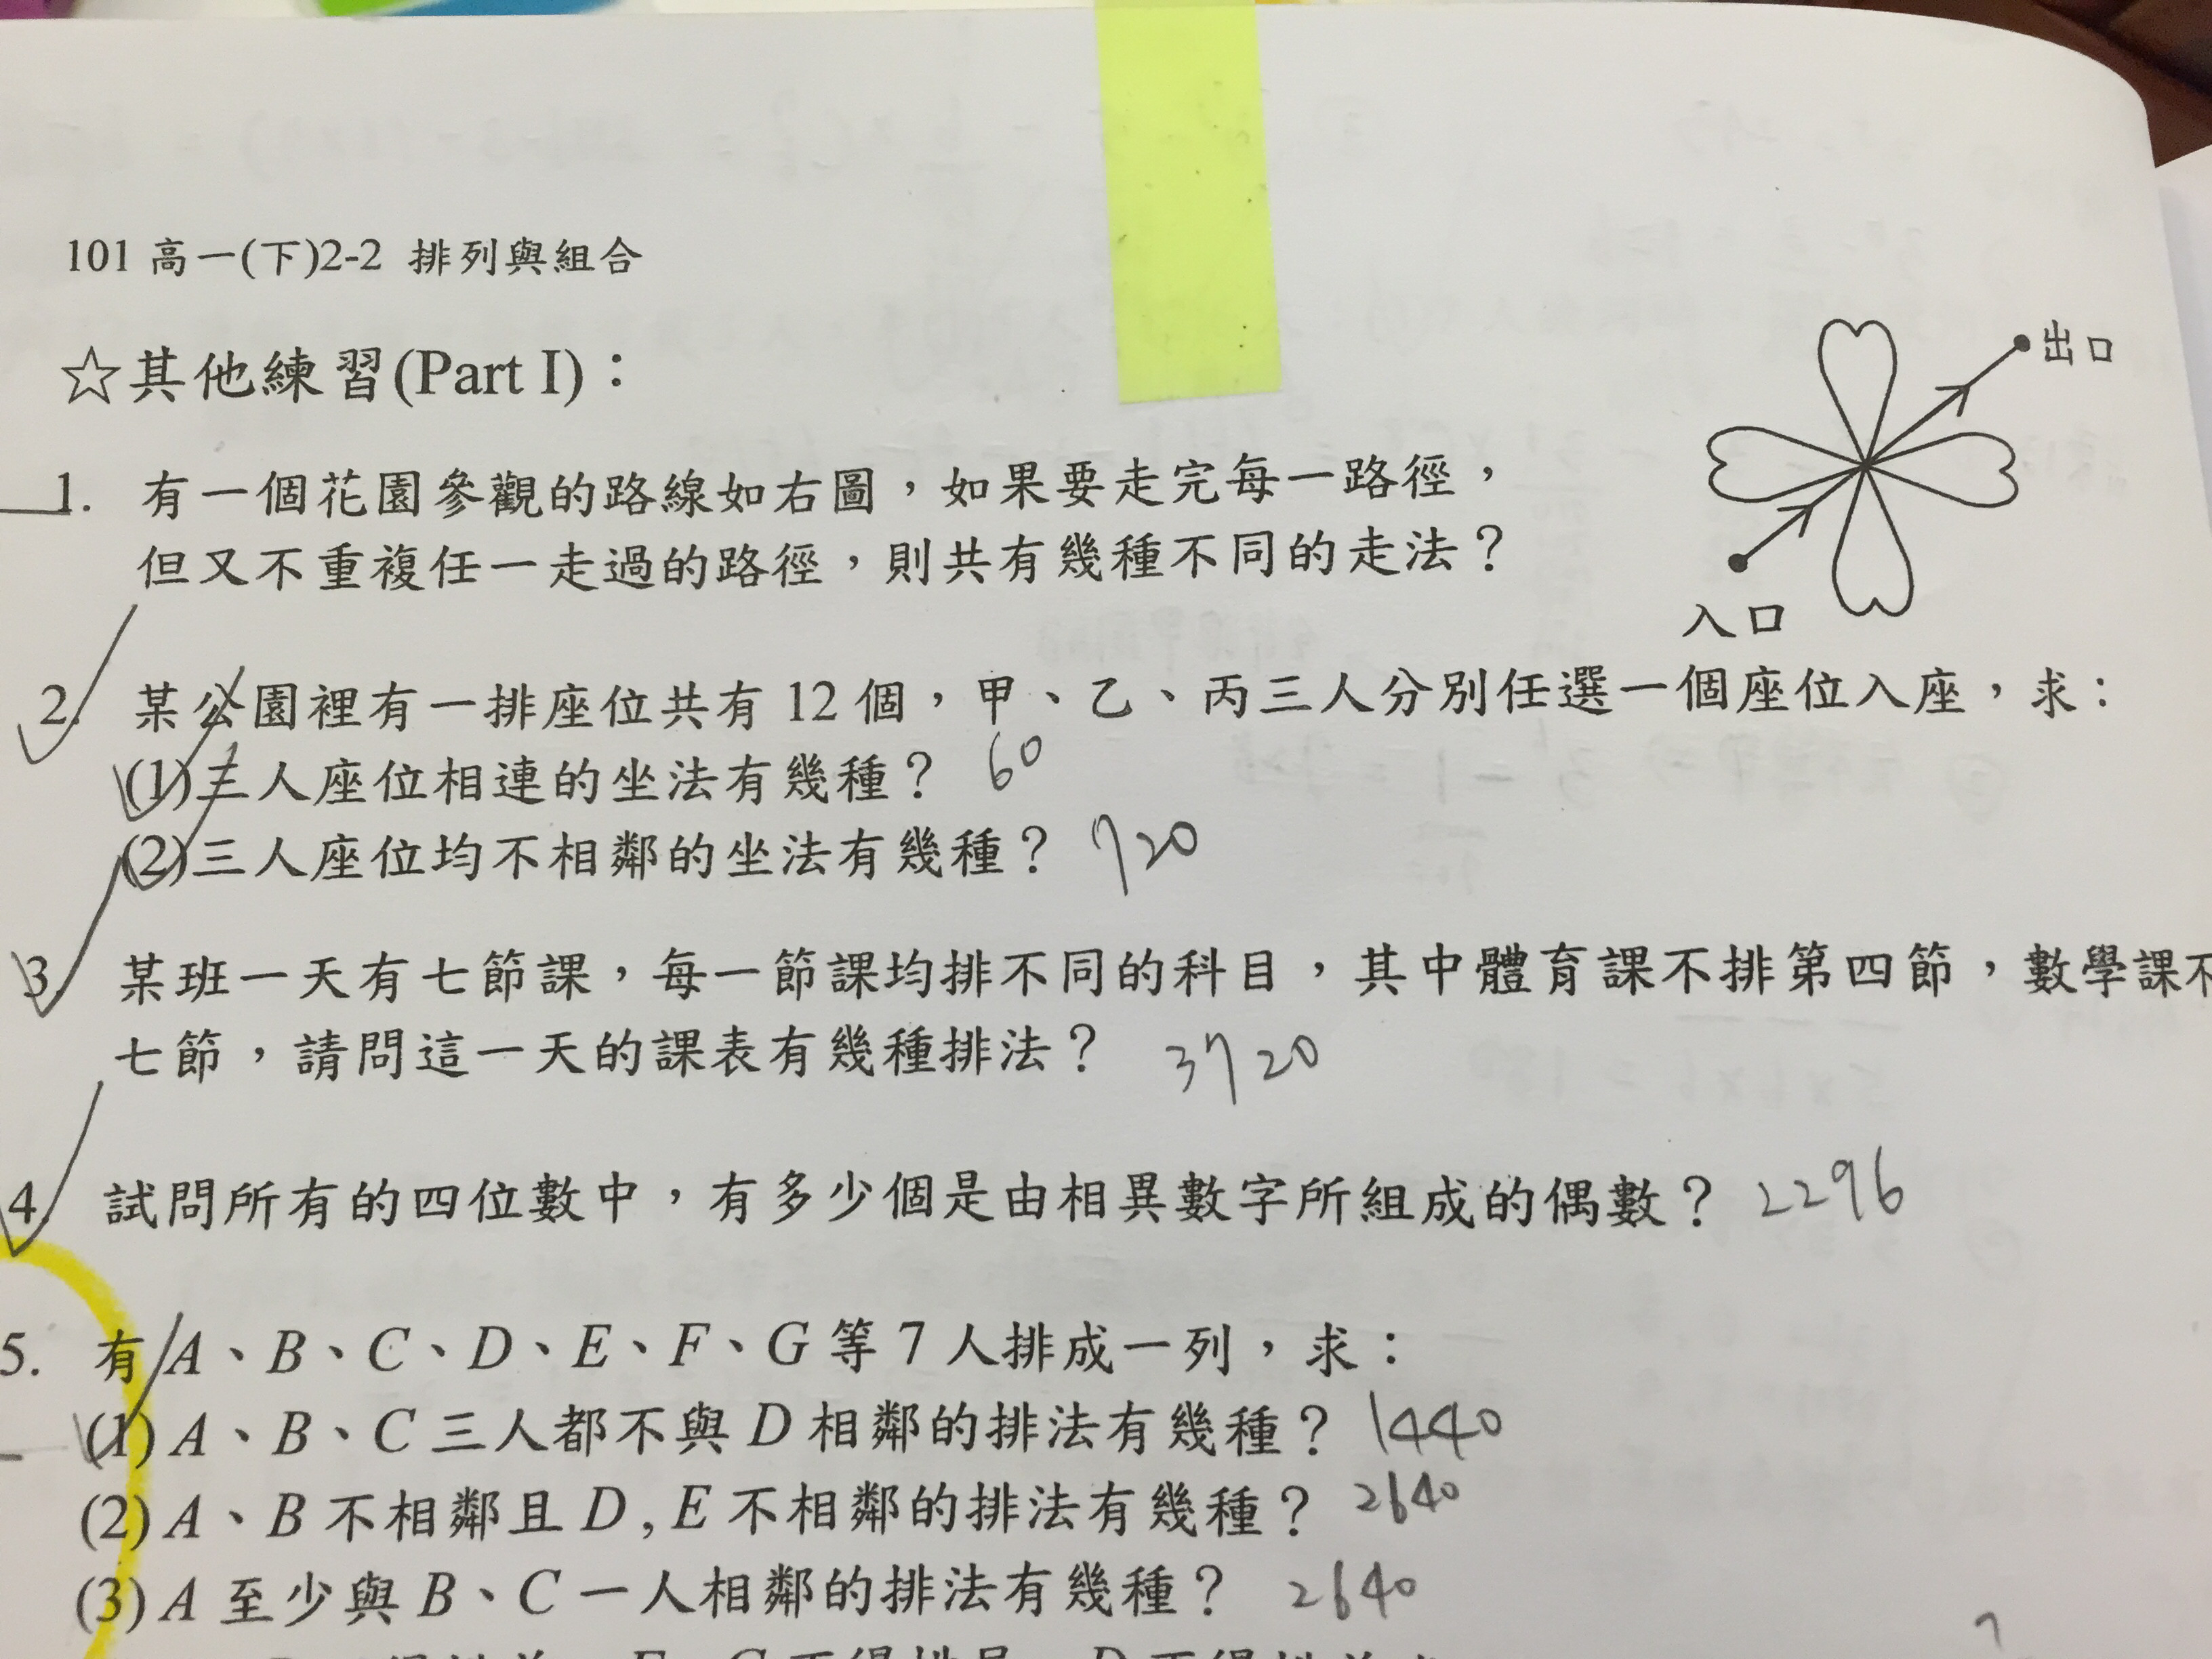 101 高一(下)2-2 排列與組合
☆其他練習(Part I)：
出口
1. 有一個花園參觀的路線如右圖，如果要走完每一路徑，
但又不重複任一走過的路徑，則共有幾種不同的走法？
入口
2. 某公園裡有一排座位共有 12 個，甲、乙、丙三人分別任選一個座位入座，求：
(1)三人座位相連的坐法有幾種？ 60
(2)三人座位均不相鄰的坐法有幾種？ 720
3. 某班一天有七節課，每一節課均排不同的科目，其中體育課不排第四節，數學課不
七節，請問這一天的課表有幾種排法？ 3720
4. 試問所有的四位數中，有多少個是由相異數字所組成的偶數？ 2296
5. 有 A、B、C、D、E、F、G 等 7 人排成一列，求：
(1) A、B、C 三人都不與 D 相鄰的排法有幾種？ 1440
(2) A、B 不相鄰且 D , E 不相鄰的排法有幾種？ 2640
(3) A 至少與 B、C 一人相鄰的排法有幾種？ 2640